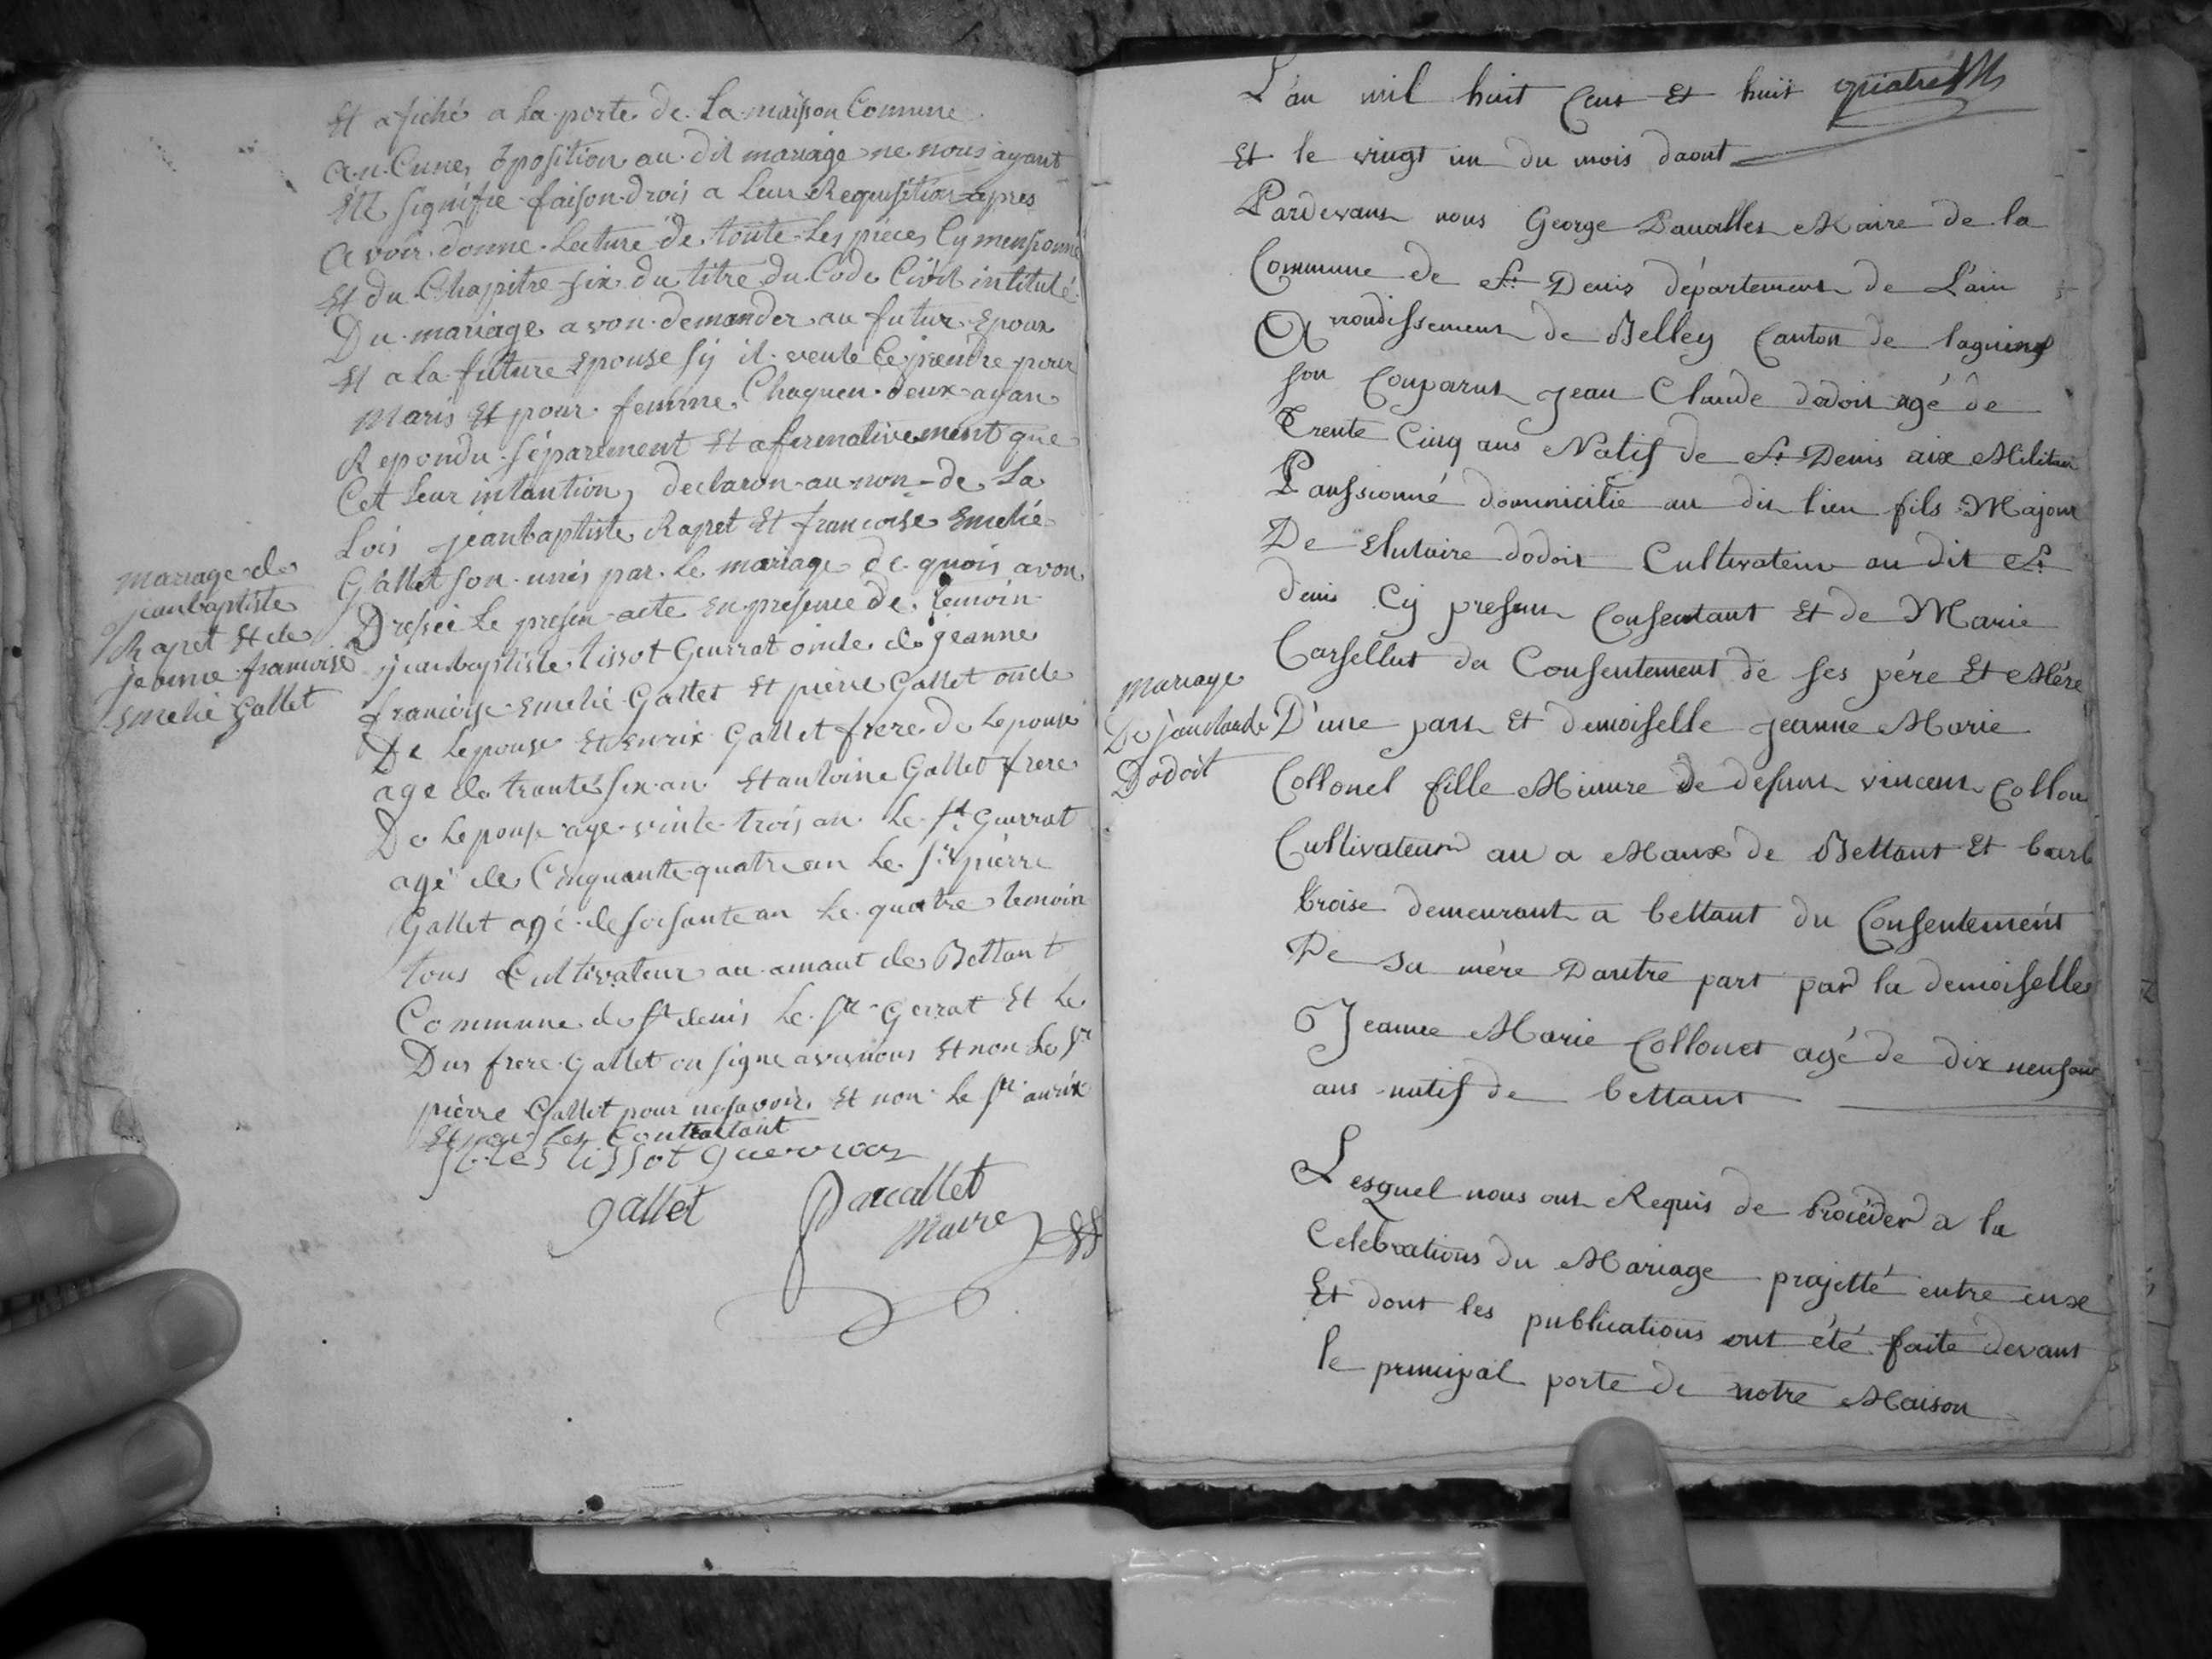 Et afiché a la porte de la maison Comune
au Cune oposition au dit mariage ne nous ayant
Été signifie faison drois a leur Requisition apres
avoir donne lecture de toute les pieces Cy mensionné
Et du Chapitre six du titre du Code Civil intitulé
Du mariage avon demander au futur Epoux
Et a la future Epouse sy il veule ce prendre pour
Maris Et pour femme Chaquen deux ayan
Repondu séparément Et afirmativement que
Cet leur intantion declaron au non de La
Lois jeanbaptiste Rapet Et francoise Emelie
Gallet son unis par le mariage de quois avon
Dressée le presen acte En presence de temoin
jeanbaptiste tissot Guerrat oncle de jeanne
francoise Emelie Gallet Et pierre Gallet oncle
De Lepouse Et Enrix Gallet frere de Lepouse
age de trante six an Et antoine Gallet frere
De Lepouse age vinte trois an Le sr Guerrat
agé de Cinquante quatre an Le sr pierre
Gallet agé de soisante an Le quatre temoin
tous Cultivateur au amaut de Bettant
Commune de st denis Le sr Gerrat Et Le
Dus frere Gallet on signe avec nous Et non Le sr
pierre Gallet pour ne savoir Et non Le sr anrix
Et non Les Contractant
tissot guerraz
gallet
Parcallet
Maire
mariage de
jeanbaptiste
Rapet Et de
jeanne francoise
Emelie Gallet
L'an mil huit Cent Et huit
Et le vingt un du mois daout
Pardevant nous George Maire de la
Commune de St Denis département de L'ain
Arrondissement de Belley Canton de lagnieu
son Comparus Jean Claude dodoit agé de
Trente Cinq ans Natif de St Denis aix Militair
Panssionné domicilié au dit lieu fils Majeur
De dodoit Cultivateur au dit St
denis Cy present Consentant Et de Marie
Carsellut du Consentement de ses pére Et Mére
D'une part Et demoiselle Jeanne Marie
Collonel fille Mineure de defunt vincent Collon
Cultivateur au a Maux de Bettant Et barb
broise demeurant a bettant du Consentement
De sa mére Dautre part par la demoiselles
Jeanne Marie Collonet agé de dix neuf
ans natif de bettant
Lesquel nous ont Requis de Procéder a la
Celebrations du Mariage projetté entre eux
Et dont les publications ont été faite devant
le principal porte de notre Maison
Mariage
De jeanclaude
Dodoit